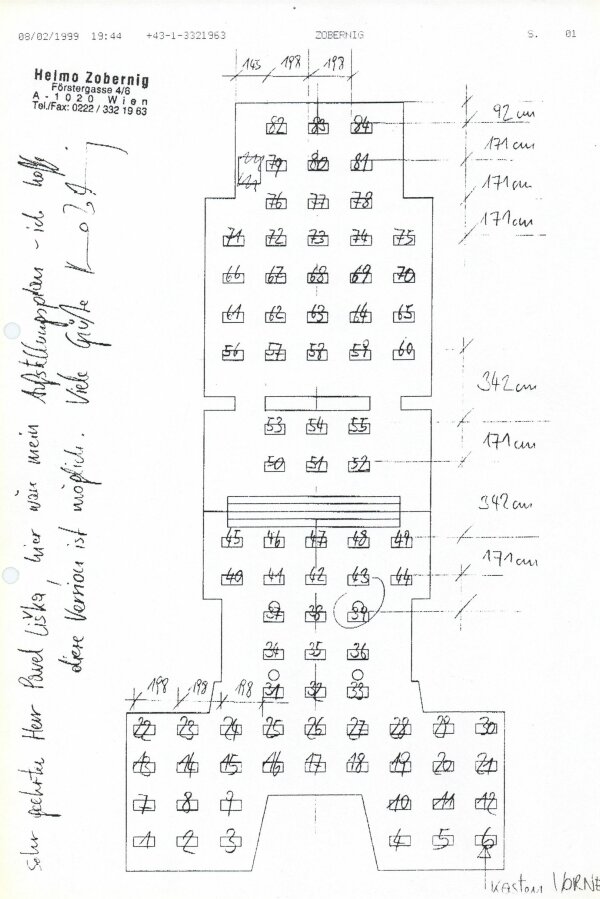 08/02/1999 19:44 +43-1-3321963 ZOBERNIG S. 01
Heimo Zobernig
Förstergasse 4/6
A - 1020 Wien
Tel./Fax: 0222 / 332 19 63
145 198 198
92 cm
171 cm
171 cm
171 cm
342 cm
171 cm
342 cm
171 cm
82 83 84
79 80 81
76 77 78
71 72 73 74 75
66 67 68 69 70
61 62 63 64 65
56 57 58 59 60
53 54 55
50 51 52
45 46 47 48 49
40 41 42 43 44
37 38 39
34 35 36
31 32 33
198 198 198
22 23 24 25 26 27 28 29 30
13 14 15 16 17 18 19 20 21
7 8 9 10 11 12
1 2 3 4 5 6
Kasten VORNE
Sehr geehrter Herr Pavel Liška, hier wär mein Aufstellungsplan - ich hoffe
diese Version ist möglich. Viele Grüße